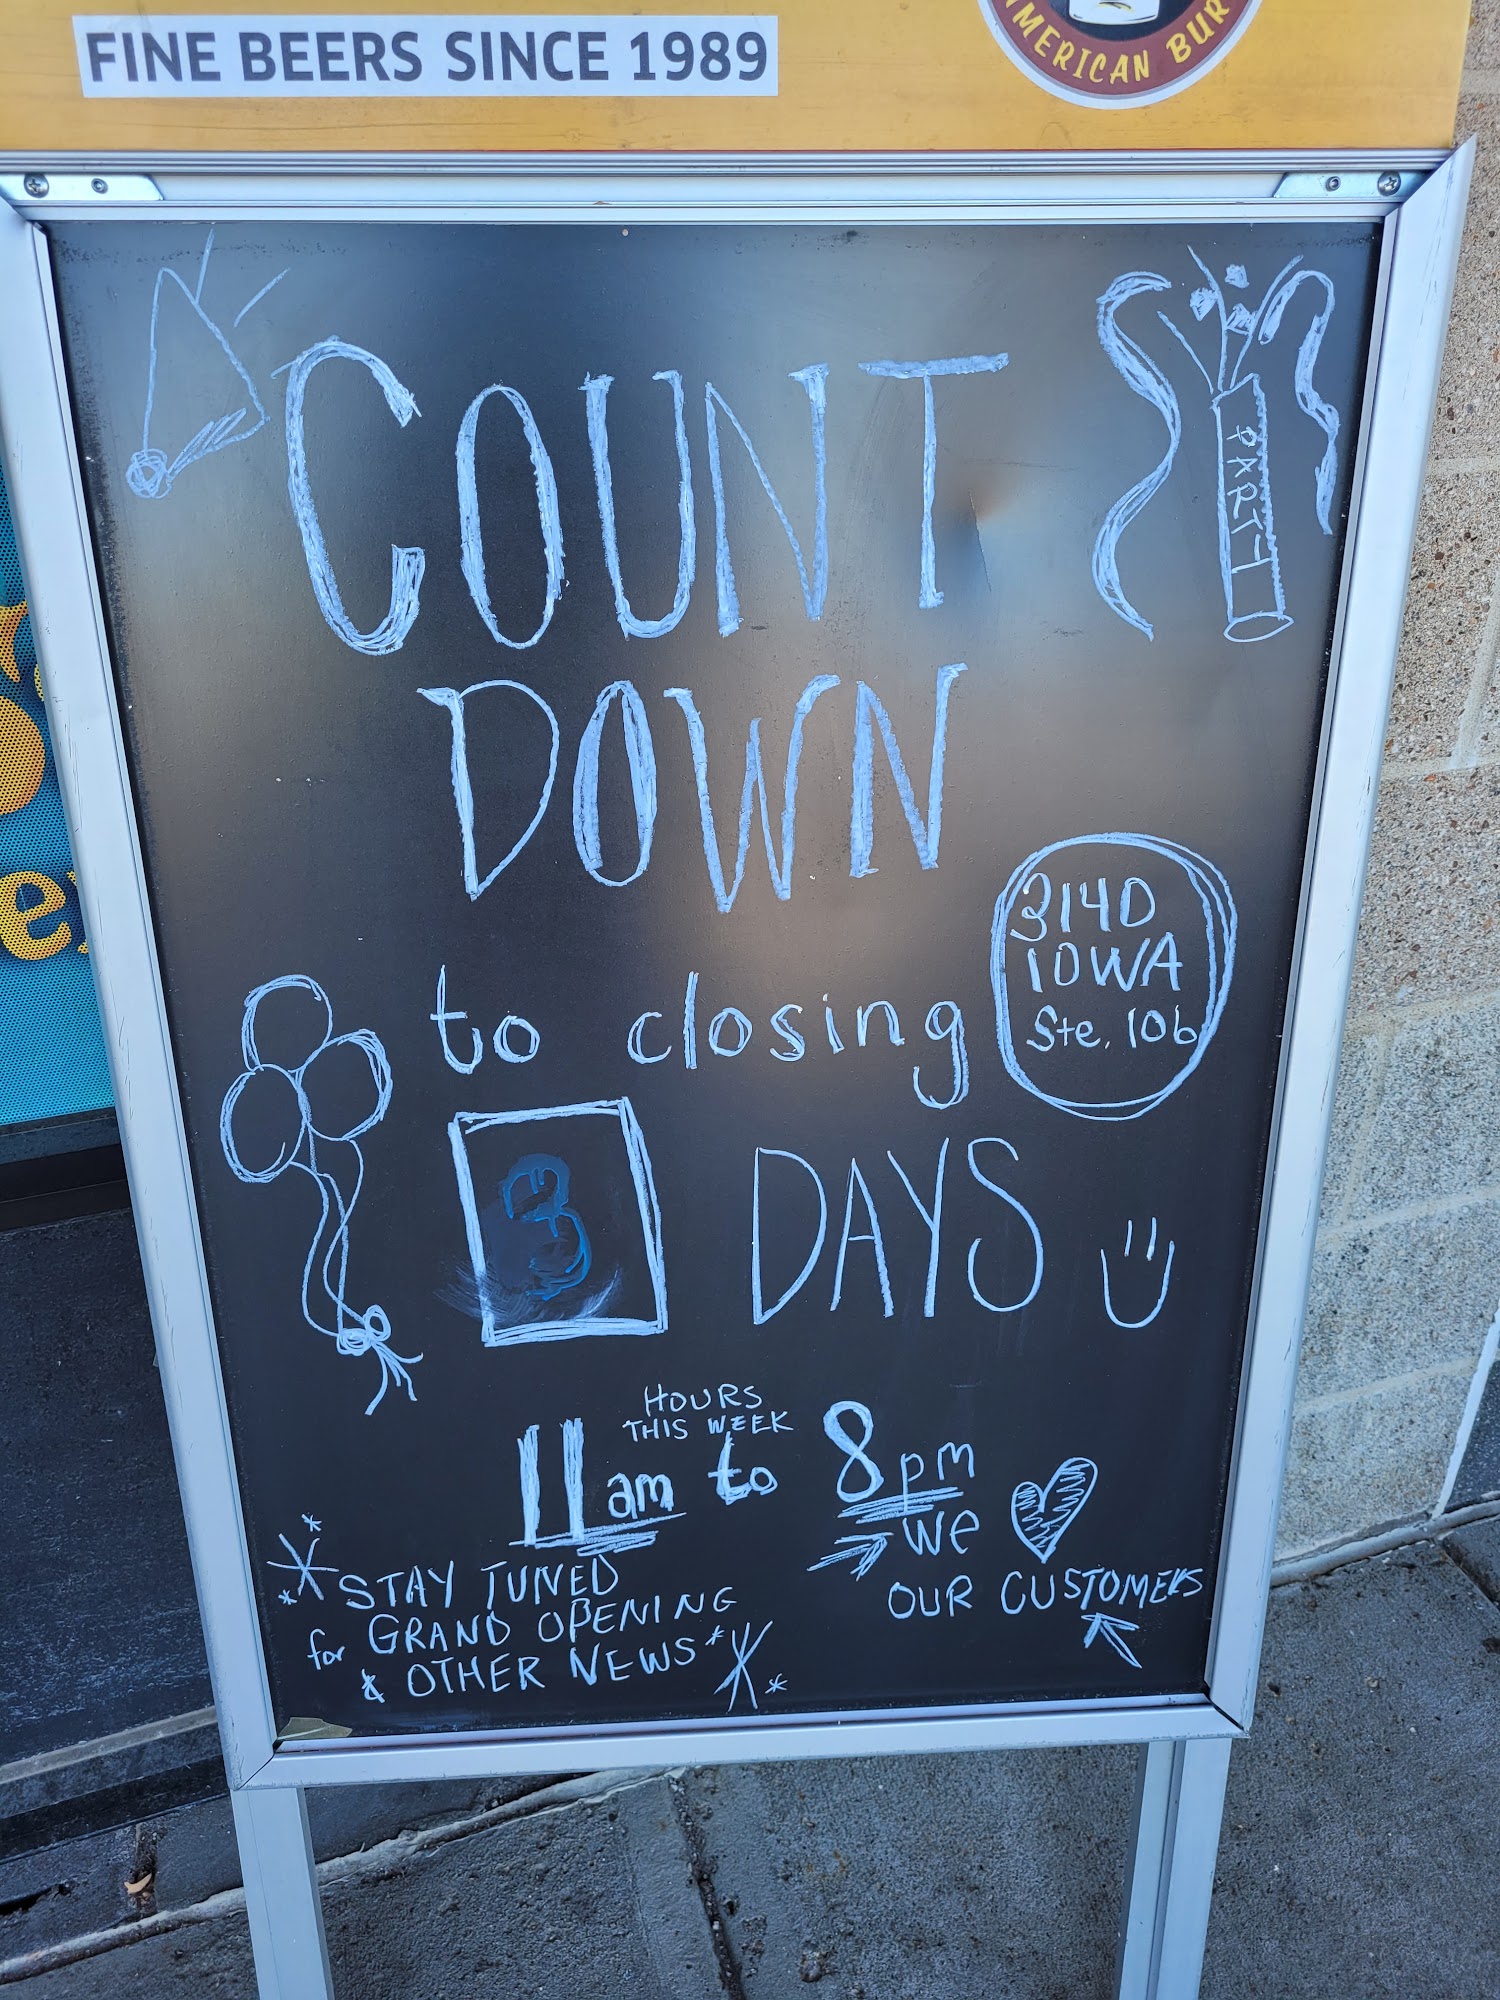 FINE BEERS SINCE 1989
AMERICAN BUR
COUNT
PARTY
DOWN
3140
IOWA
Ste. 106
to closing
3 DAYS
HOURS
THIS WEEK
11am to 8pm
we
OUR CUSTOMERS
STAY TUNED
for GRAND OPENING
& OTHER NEWS